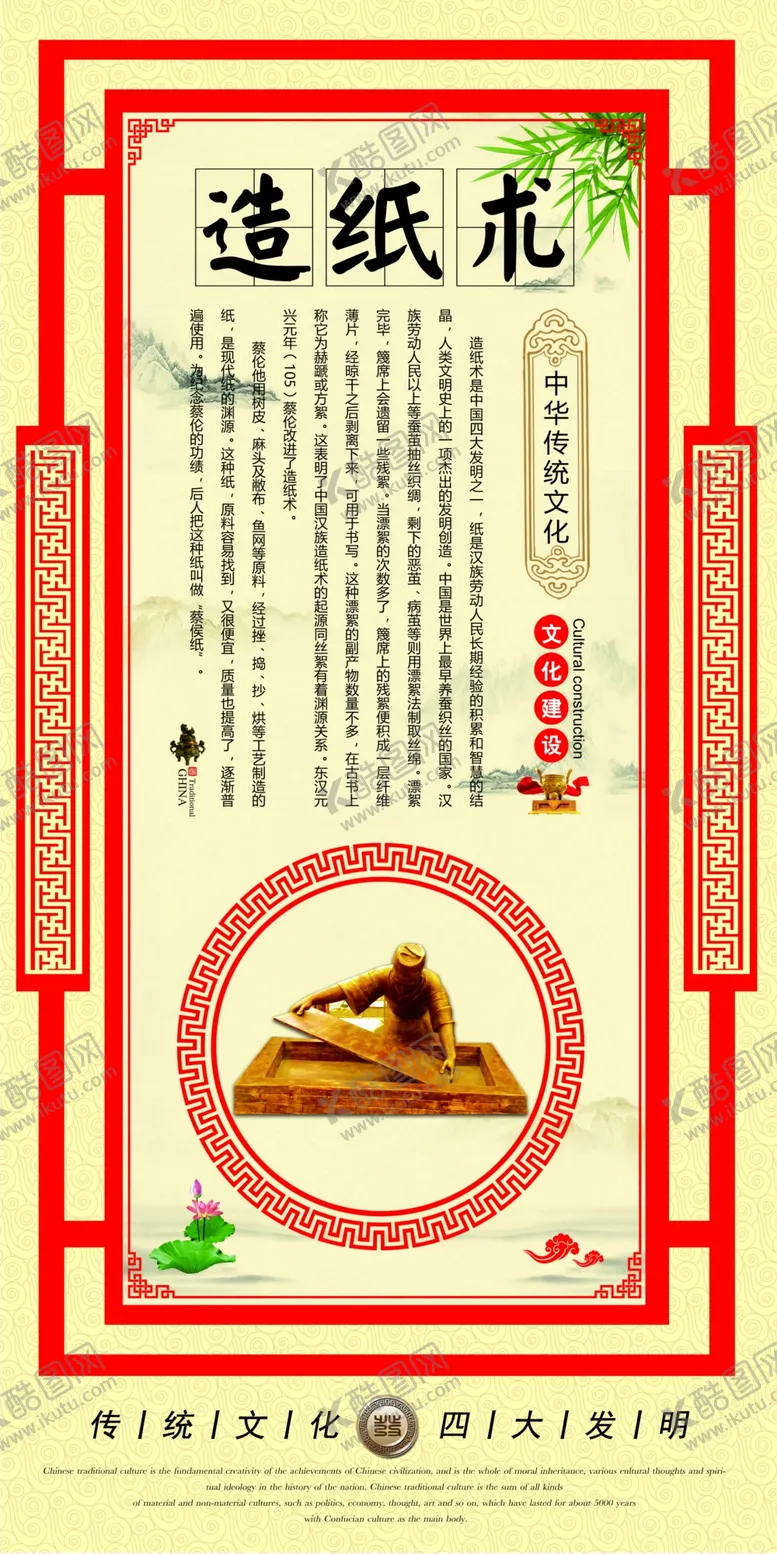 造纸术
中华传统文化
文化建设
Cultural construction
造纸术是中国四大发明之一，纸是汉族劳动人民长期经验的积累和智慧的结
晶，人类文明史上的一项杰出的发明创造。中国是世界上最早养蚕织丝的国家。汉
族劳动人民以上等蚕茧抽丝织绸，剩下的恶茧、病茧等则用漂絮法制取丝绵。漂絮
完毕，篾席上会遗留一些残絮。当漂絮的次数多了，篾席上的残絮便积成一层纤维
薄片，经晾干之后剥离下来，可用于书写。这种漂絮的副产物数量不多，在古书上
称它为赫蹏或方絮。这表明了中国汉族造纸术的起源同丝絮有着渊源关系。东汉元
兴元年（105）蔡伦改进了造纸术。
蔡伦他用树皮、麻头及敝布、鱼网等原料，经过挫、捣、抄、烘等工艺制造的
纸，是现代纸的渊源。这种纸，原料容易找到，又很便宜，质量也提高了，逐渐普
遍使用。为纪念蔡伦的功绩，后人把这种纸叫做“蔡侯纸”。
Traditional
GHINA
传|统|文|化 四|大|发|明
Chinese traditional culture is the fundamental creativity of the achievements of Chinese civilization, and is the whole of moral inheritance, various cultural thoughts and spiri-
tual ideology in the history of the nation. Chinese traditional culture is the sum of all kinds
of material and non-material cultures, such as politics, economy, thought, art and so on, which have lasted for about 5000 years
with Confucian culture as the main body.
酷图网
www.ikutu.com